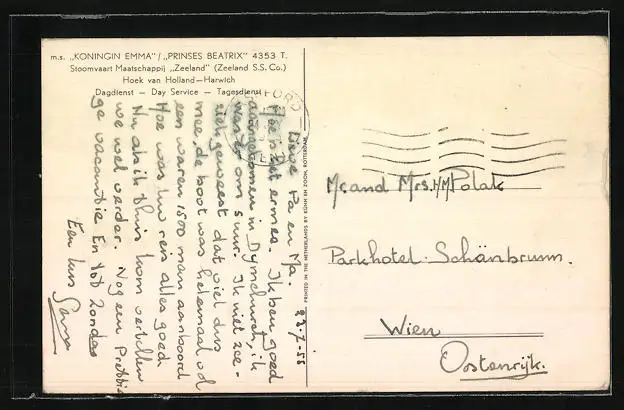 m.s. „KONINGIN EMMA"/„PRINSES BEATRIX" 4353 T.
Stoomvaart Maatschappij „Zeeland" (Zeeland S.S. Co.)
Hoek van Holland—Harwich
Dagdienst — Day Service — Tagesdienst
23.7-55
Lieve Pa en Ma.
Hoe is het ermee. Ik ben goed
aangekomen in Dymchurch, ik
was er om 5 uur. Ik niet zee-
ziek geweest dat viel dus
mee, de boot was helemaal vol
er waren 1500 man aan boord
Hoe was Uw reis alles goed
Nu als ik thuis kom vertellen
we wel verder. Nog een Prettige
vacantie En tot Zondag
Een kus
PRINTED IN THE NETHERLANDS BY KÜHN EN ZOON, ROTTERDAM
Mr. and Mrs. HM Polak
Parkhotel Schönbrunn.
Wien
Oostenrijk.